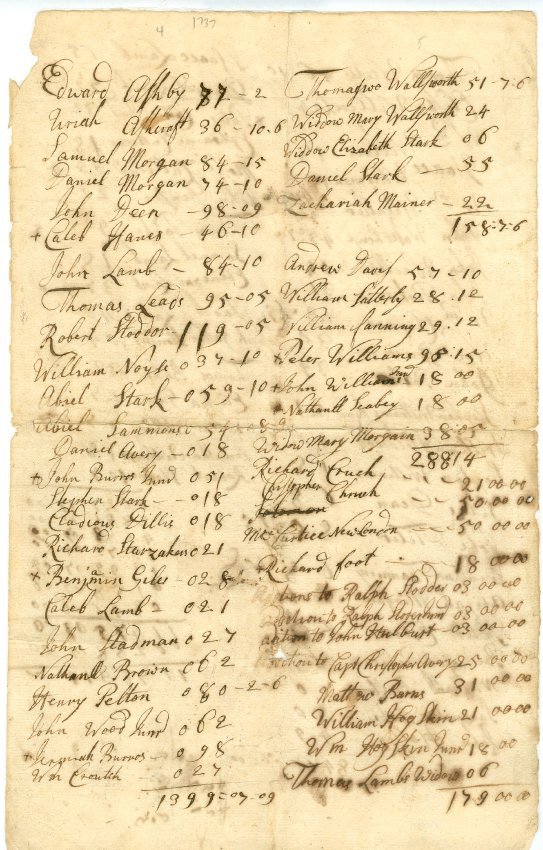 4 1737
Edward Ashby 87 - 2
Uriah Ashcraft 36 - 10-6
Samuel Morgan 84 - 15
Daniel Morgan 74 - 10
John Deen - 98 - 09
+ Caleb Hanes - 46 - 10
John Lamb - 84 - 10
Thomas Leads 95 - 05
Robert Stoddor 119 - 05
William Noyse 037 - 10
Abiel Stark - 059 - 10
Abiel Sammons 54
Daniel Avery - 018
+ John Burros Junr 051
Stephen Stark - 018
Cladious Dillis 018
Richard Starzakers 021
+ Benjamin Giles - 028
Caleb Lamb - 021
John Stadman 027
Nathanll Brown 062
Henry Pelton 080 - 2 - 6
John Wood Junr 062
+ Jeremiah Burros - 098
Wm Croutch 027
1399 - 07 - 09
Wallsworth 51 - 7 - 6
Widdow Mary Wallsworth 24
Widdow Elizabeth Stark 06
Daniel Stark - 55
Zachariah Mainer - 22
158 - 7 - 6
Andrew Davis 57 - 10
William Satterly 28 . 12
William Ganning 29 . 12
+ Peter Williams 98 . 15
+ John Williams 2nd 18 00
Nathanll Seabey 18 00
Widow Mary Morgain 38 . 05
288 14
Richard Cruch 21 00 00
Christopher Chruch 50 00 00
New London 50 00 00
Richard foot 18 00 00
to Ralph Stodder 03 00 00
adition to Ralph 03 00 00
adition to John Hulburt 03 00 00
to Capt Christopher Avery 25 00 00
Mattow Barns 31 00 00
William Hog Skin 21 00 00
Wm Hog Skin Junr 18 00
Thomas Lambs Widow 06
179 00 00